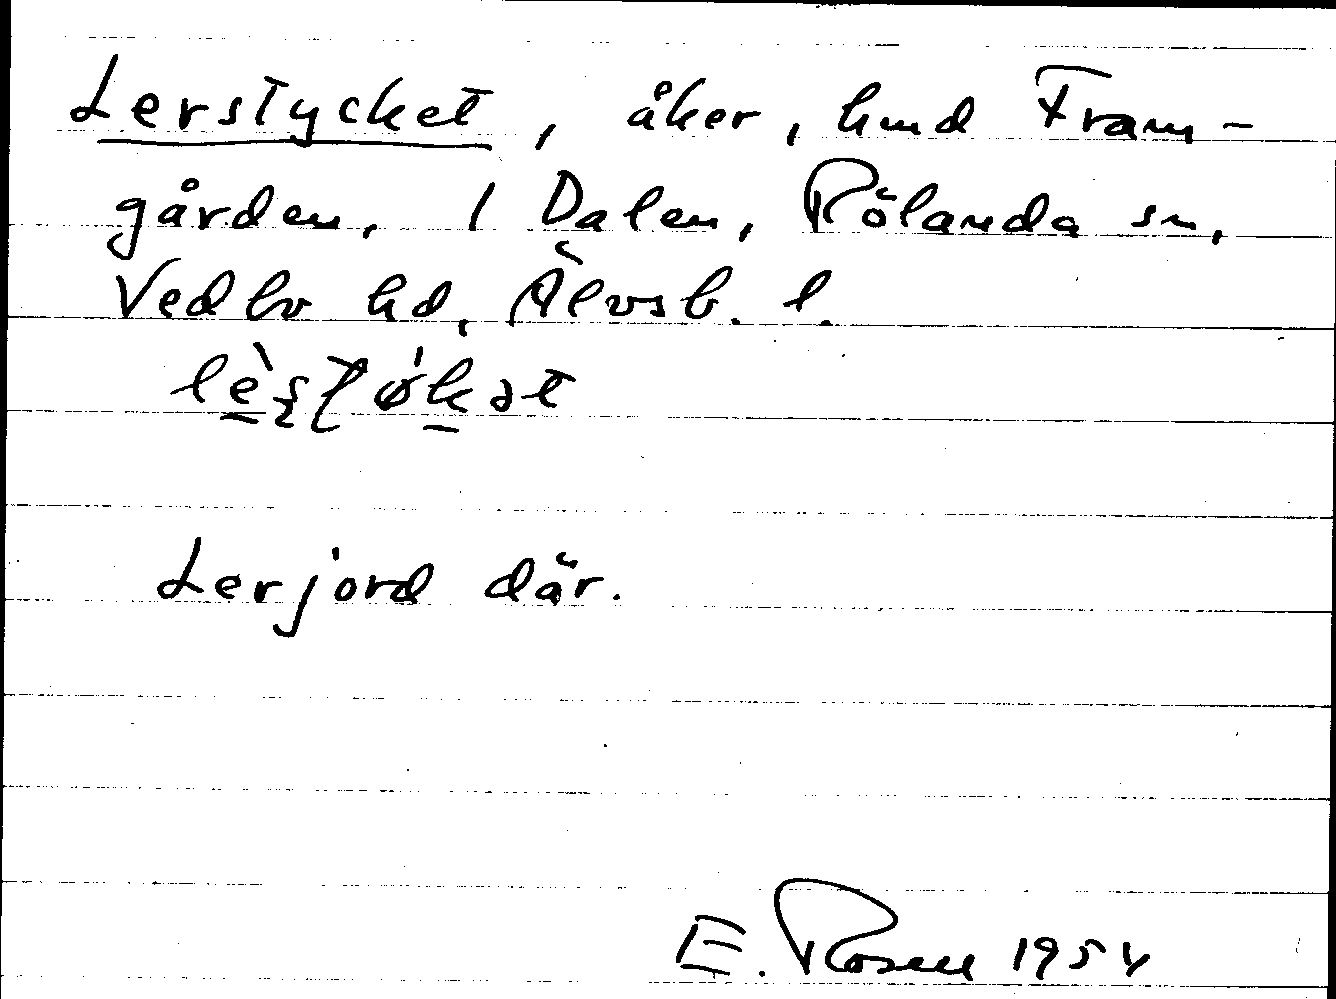 Lerstycket, åker, hmd Fram-
gården, 1 Dalen, Rölanda sn,
Vedbo hd, Älvsb. l.
Lerjord där.
E. Rosell 1954